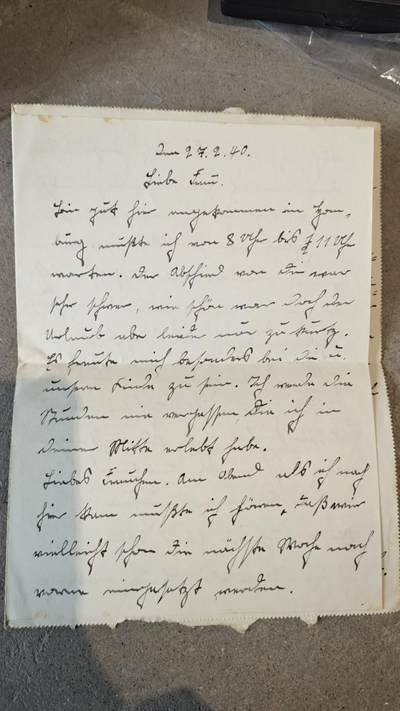 Den 27.2.40.
Liebe Frau.
Bin gut hier angekommen in Hom-
burg mußte ich von 8 Uhr bis 11 Uhr
warten. Der Abschied von Dir war
sehr schwer, wie schön war doch der
Urlaub aber leider nur zu kurz.
Es freute mich besonders bei dir u.
unsern Kinde zu sein. Ich werde die
Stunden nie vergessen, die ich in
deiner Mitte erlebt habe.
Liebes Frauchen. Am Abend als ich nach
hier kam mußte ich hören, daß wir
vielleicht schon die nächste Woche nach
vorne eingesetzt werden.